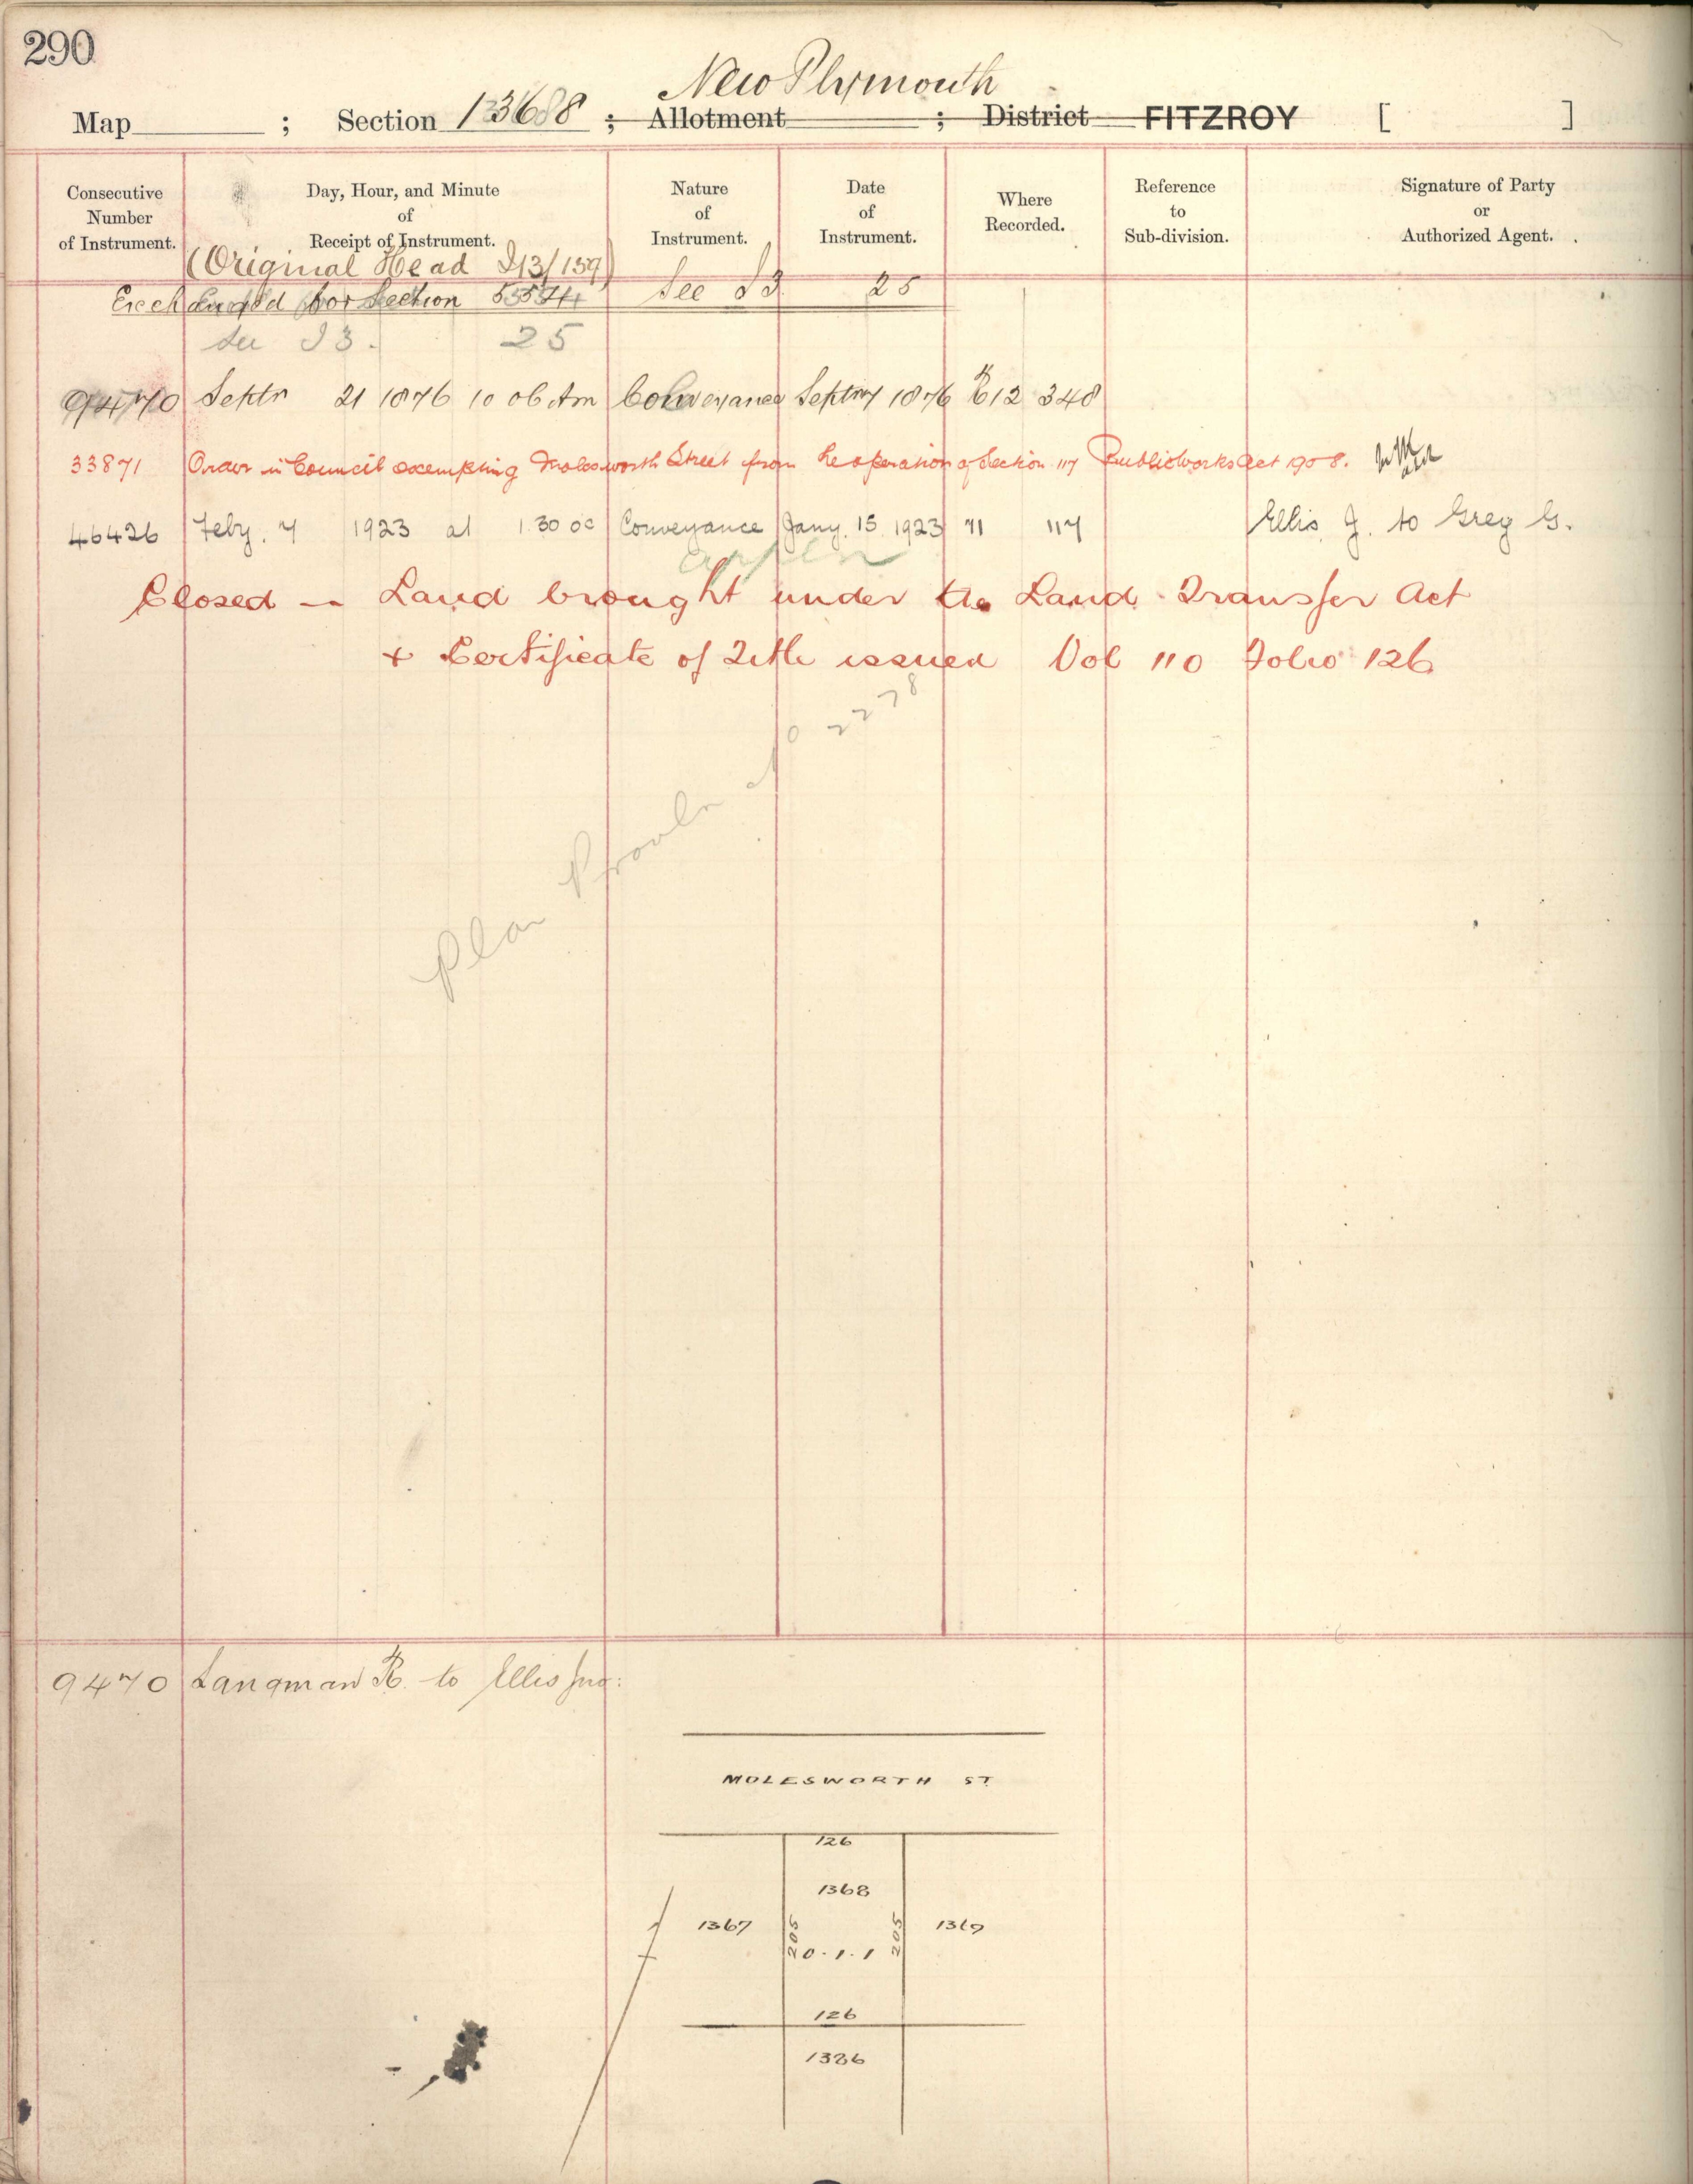 290
New Plymouth
Map ; Section 1368 ; Allotment ; District FITZROY [ ]
Consecutive Number of Instrument.
Day, Hour, and Minute of Receipt of Instrument.
Nature of Instrument.
Date of Instrument.
Where Recorded.
Reference to Sub-division.
Signature of Party or Authorized Agent.
(Original Head I13/159)
Exchanged for Section See I3 25
See I3. 25
9470 Septr 21 1876 10 06 Am Conveyance Septr 7 1876 R12 348
33871 Order in Council exempting Molesworth Street from the operation of Section 117 Public Works Act 1908.
46426 Feby. 7 1923 at 1.30 oc Conveyance Jany. 15. 1923 71 117 Ellis, J. to Grey G.
Closed — Land brought under the Land Transfer Act
+ Certificate of Title issued Vol 110 Folio 126
Plan No 2278
9470 Langman R. to Ellis Jno:
MOLESWORTH ST
126
1368
1367 205 205 1369
0.1.1
126
1386